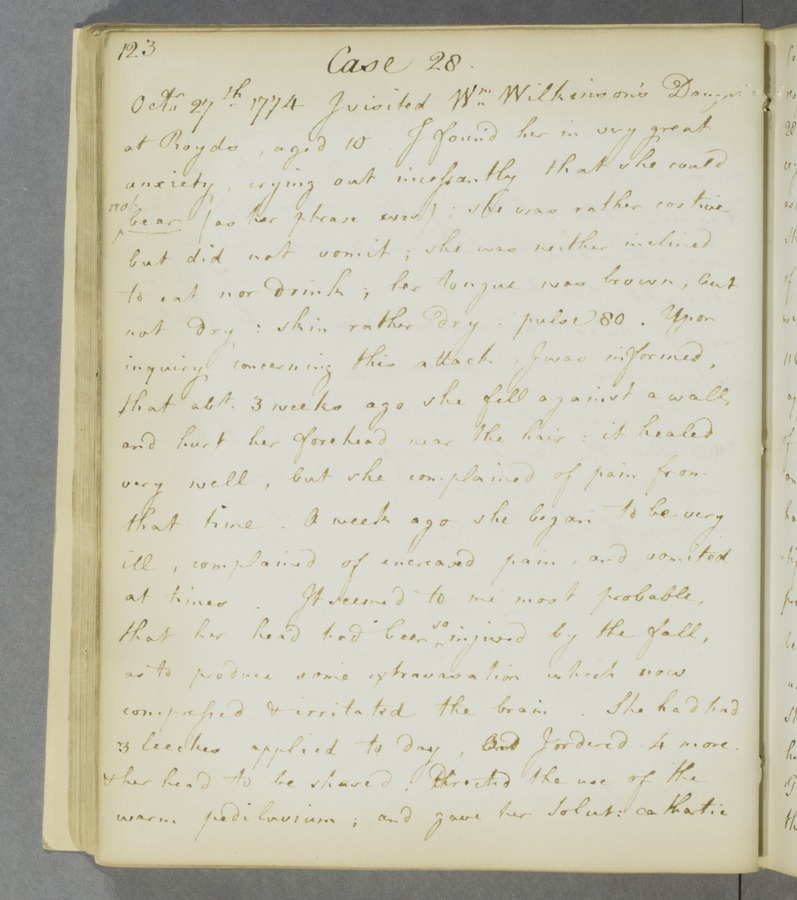 123
Case 28.
Octr. 27th. 1774 I visited Wm. Wilkinson's
at Royds, aged 10. I found her in very great
anxiety, crying out incessantly that she could
not
bear (as her phrase was): she was rather costive
but did not vomit; she was neither inclined
to eat nor Drink; her tongue was brown, but
not Dry: skin rather Dry: pulse 80. Upon
inquiry concerning this attack, I was informed,
that abt. 3 weeks ago she fell against a wall,
and hurt her forehead near the hair: it healed
very well, but she complained of pain from
that time. A week ago she began to be very
ill, complained of encreased pain, and vomited
at times. It seemed to me most probable,
that her head had been so injured by the fall,
as to produce some extravasation which now
compressed & irritated the brain. She had had
3 leeches applied to Day, And I ordered 4 more.
& her head to be shaved; Directed the use of the
warm pediluvium; and gave her Solut: cathartic